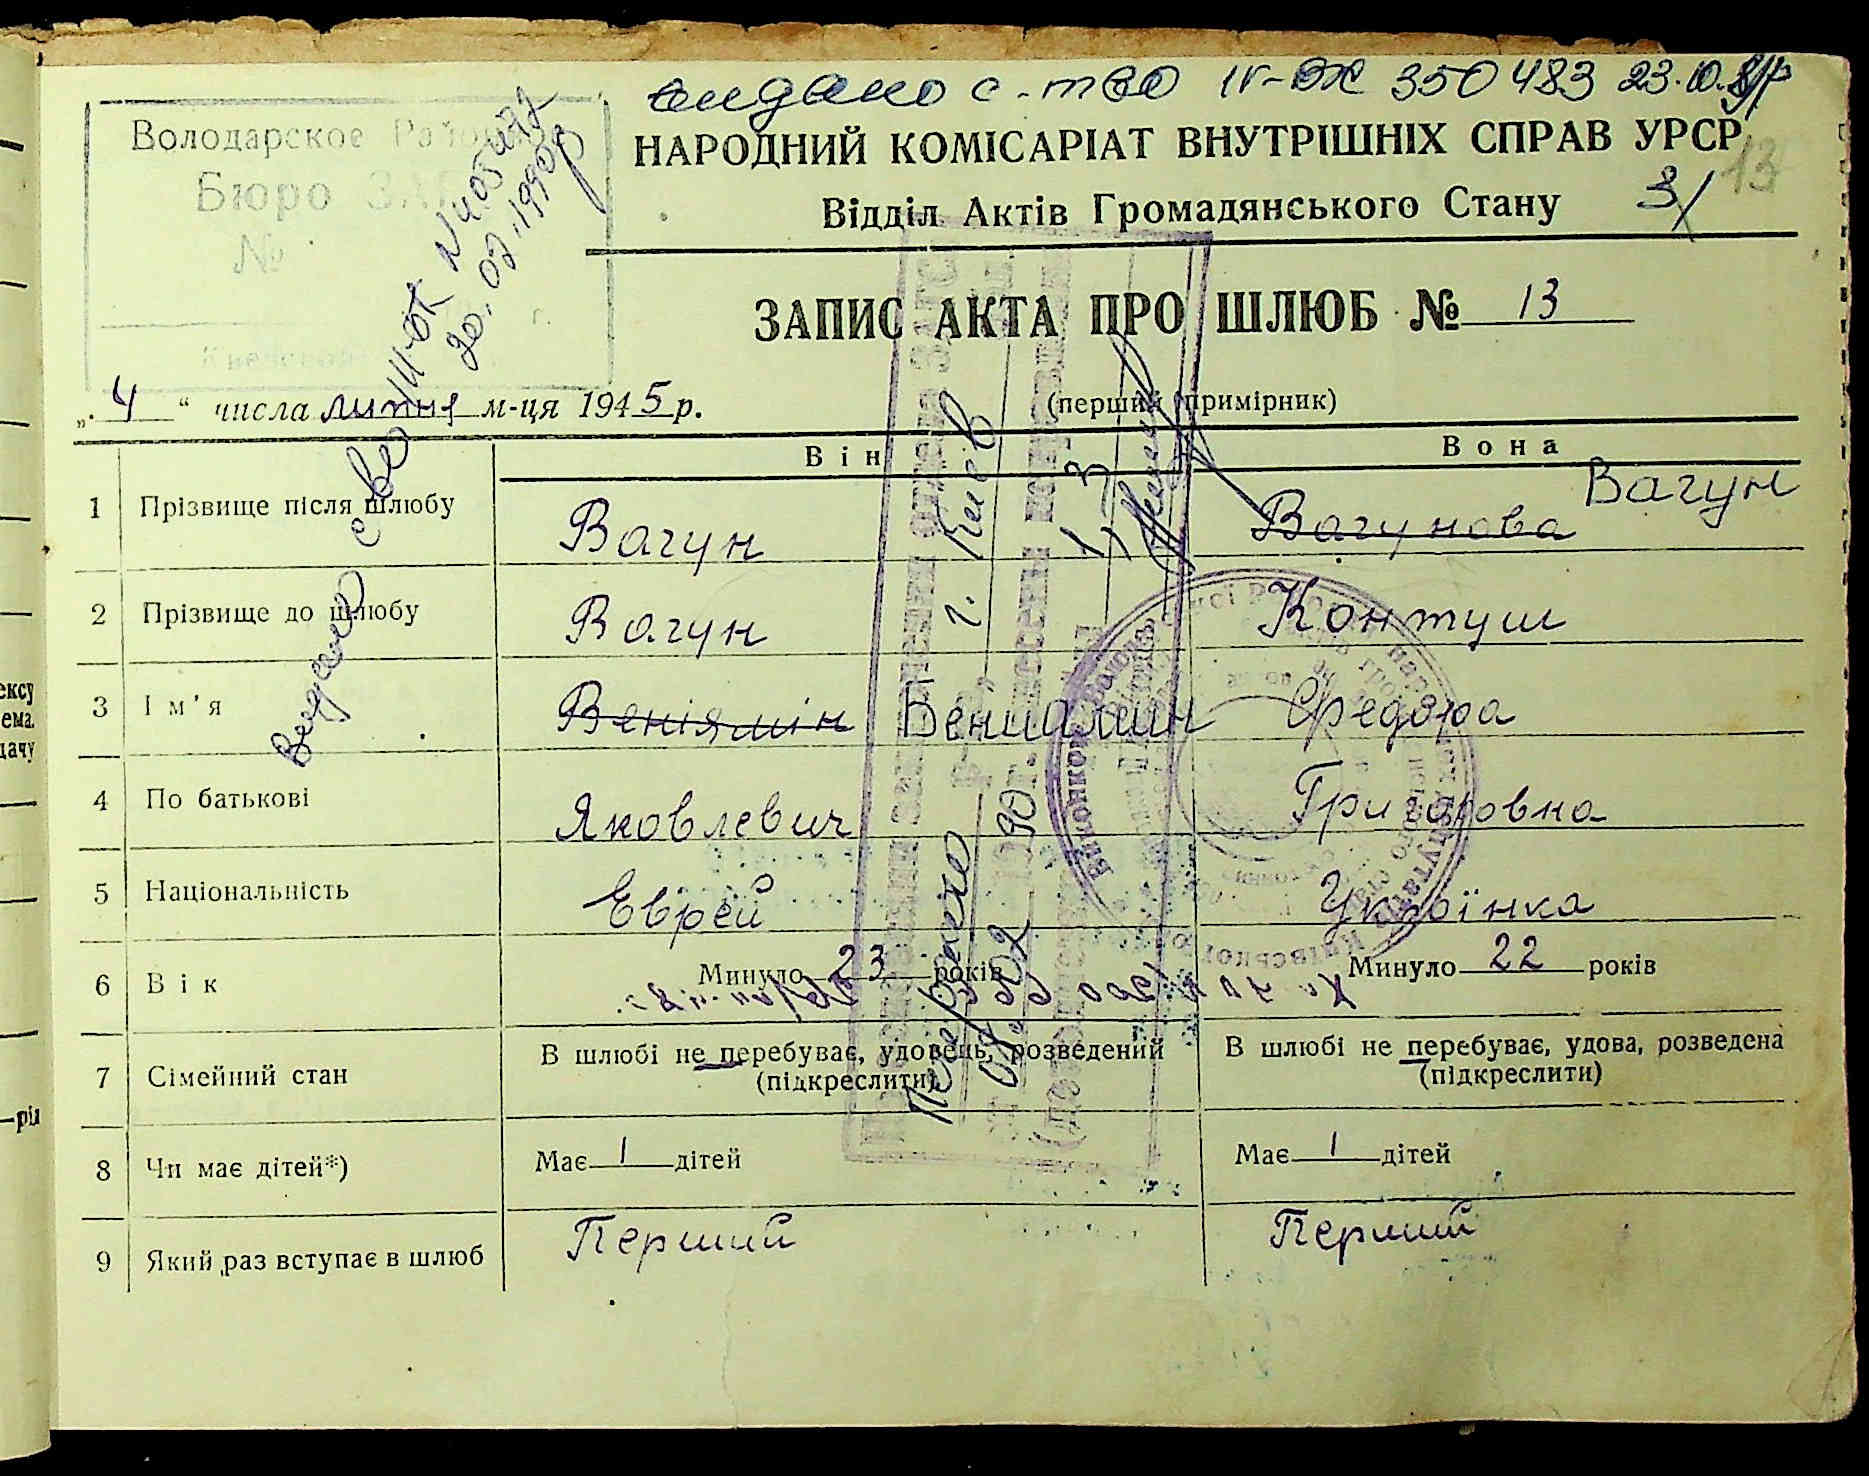 видано с-тво IV-ЭК 350483 23.10.
Володарское
Бюро
№
НАРОДНИЙ КОМІСАРІАТ ВНУТРІШНІХ СПРАВ УРСР
13
Відділ Актів Громадянського Стану
3/
ЗАПИС АКТА ПРО ШЛЮБ № 13
г.
„ 4 “ числа липня м-ця 1945 р.
(перший примірник)
Він Вона
1 Прізвище після шлюбу Вагун Вагунова Вагун
2 Прізвище до шлюбу Вагун Контуш
3 Ім'я Веніямін Вениамин Федора
4 По батькові Яковлевич Григоровна
5 Національність Еврей Українка
6 Вік Минуло 23 років Минуло 22 років
7 Сімейний стан В шлюбі не перебуває, удовець, розведений В шлюбі не перебуває, удова, розведена
(підкреслити) (підкреслити)
8 Чи має дітей*) Має 1 дітей Має 1 дітей
9 Який раз вступає в шлюб Перший Перший
Видано
20.07.1990р
г. Киев
1990г.